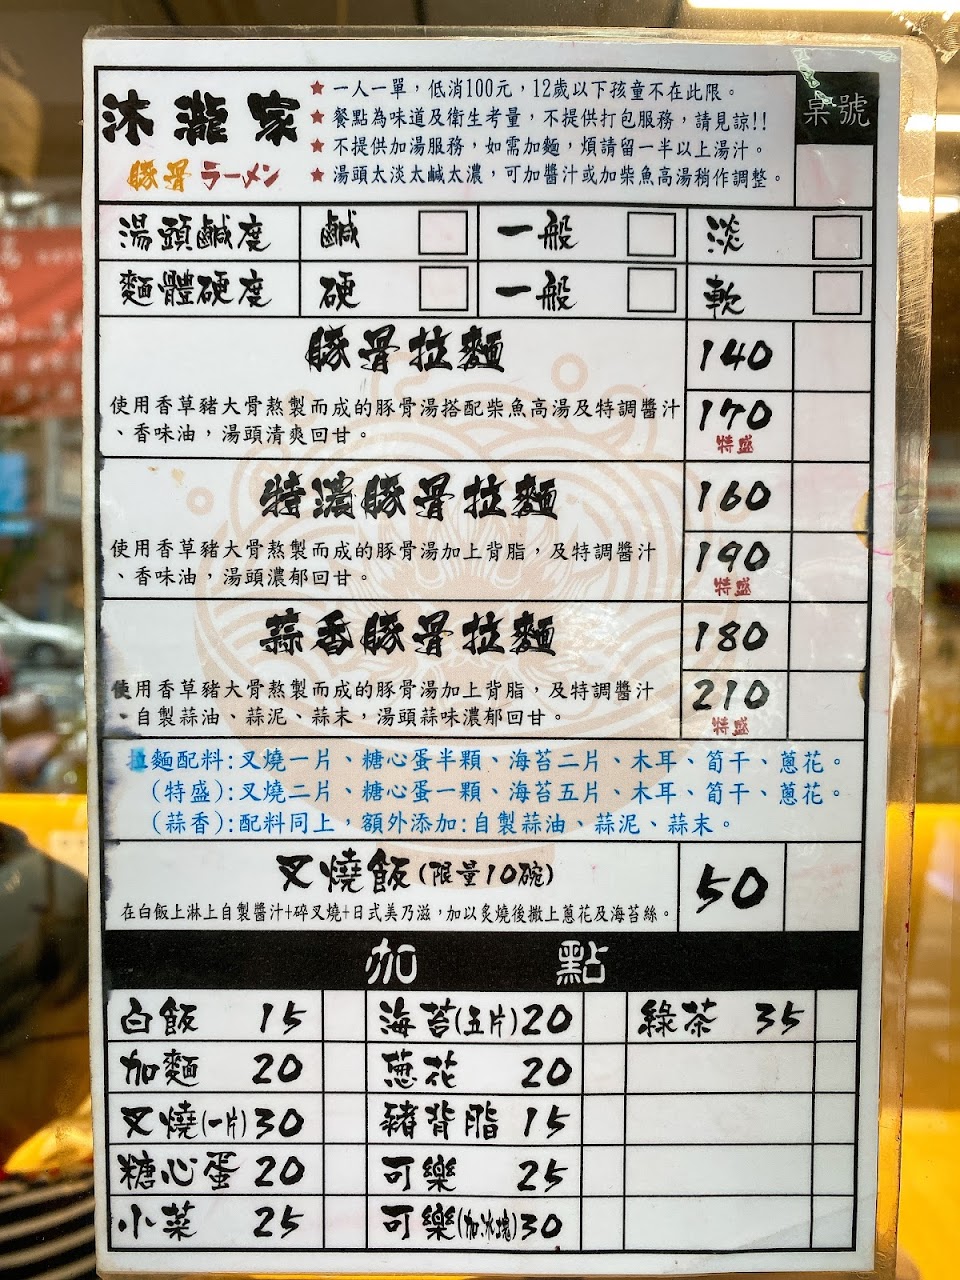 沐瀧家
豚骨ラーメン
★ 一人一單，低消100元，12歲以下孩童不在此限。
★ 餐點為味道及衛生考量，不提供打包服務，請見諒!!
★ 不提供加湯服務，如需加麵，煩請留一半以上湯汁。
★ 湯頭太淡太鹹太濃，可加醬汁或加柴魚高湯稍作調整。
桌號
湯頭鹹度 鹹 一般 淡
麵體硬度 硬 一般 軟
豚骨拉麵 140
使用香草豬大骨熬製而成的豚骨湯搭配柴魚高湯及特調醬汁
、香味油，湯頭清爽回甘。
170
特盛
特濃豚骨拉麵 160
使用香草豬大骨熬製而成的豚骨湯加上背脂，及特調醬汁
、香味油，湯頭濃郁回甘。
190
特盛
蒜香豚骨拉麵 180
使用香草豬大骨熬製而成的豚骨湯加上背脂，及特調醬汁
、自製蒜油、蒜泥、蒜末，湯頭蒜味濃郁回甘。
210
特盛
拉麵配料:叉燒一片、糖心蛋半顆、海苔二片、木耳、筍干、蔥花。
(特盛):叉燒二片、糖心蛋一顆、海苔五片、木耳、筍干、蔥花。
(蒜香):配料同上，額外添加:自製蒜油、蒜泥、蒜末。
叉燒飯(限量10碗) 50
在白飯上淋上自製醬汁+碎叉燒+日式美乃滋,加以炙燒後撒上蔥花及海苔絲。
加點
白飯 15 海苔(五片)20 綠茶 35
加麵 20 蔥花 20
叉燒(一片)30 豬背脂 15
糖心蛋 20 可樂 25
小菜 25 可樂(加冰塊)30